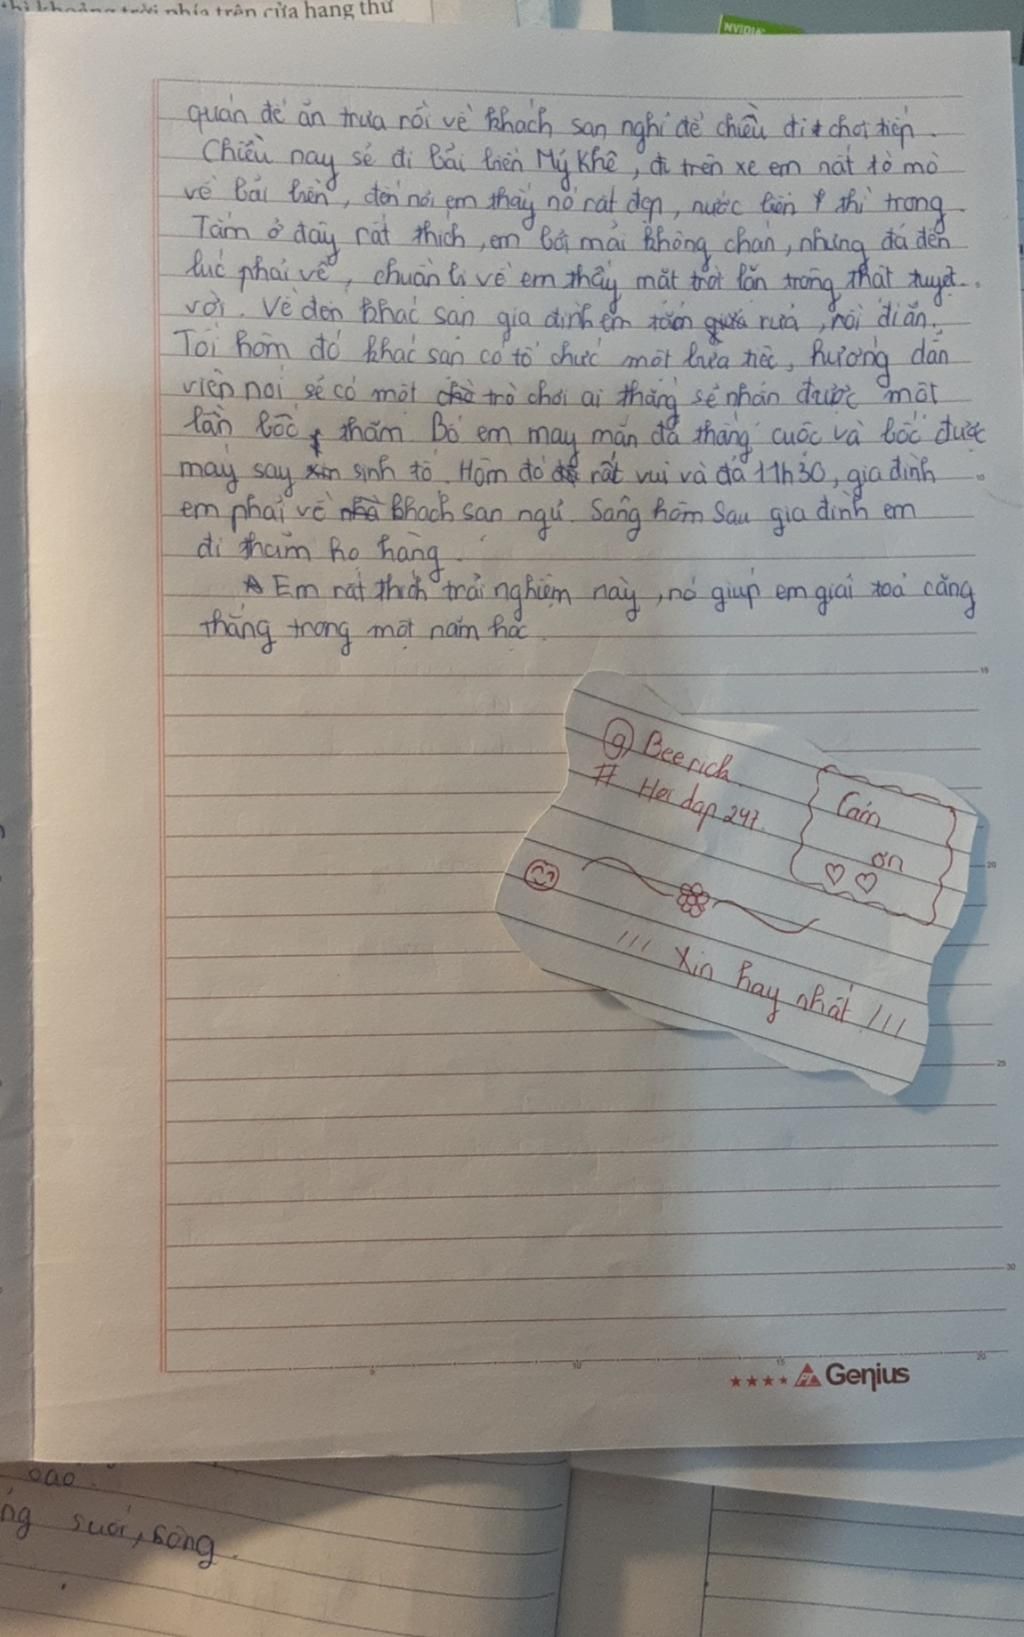 khoảng trời phía trên cửa hang thứ
NVIDIA
quán để ăn trưa rồi về khách sạn nghỉ để chiều đi chơi tiếp.
Chiều nay sẽ đi bãi biển Mỹ Khê, đi trên xe em nất tò mò
về bãi biển, đến nơi em thấy nó rất đẹp, nước biển thì trong.
Tắm ở đây rất thích, em bơi mãi không chán, nhưng đã đến
lúc phải về, chuẩn bị về em thấy mặt trời lặn trông thật tuyệt
vời. Về đến khác sạn gia đình em tắm rửa, rồi đi ăn.
Tối hôm đó khác sạn có tổ chức một bữa tiệc, hướng dẫn
viên nói sẽ có một trò chơi ai thắng sẽ nhận được một
lần bốc thăm Bố em may mắn đã thắng cuộc và bốc được
máy say sinh tố. Hôm đó rất vui và đã 11h30, gia đình
em phải về khách sạn ngủ. Sáng hôm sau gia đình em
đi thăm họ hàng.
Em rất thích trải nghiệm này, nó giúp em giải toả căng
thẳng trong một năm học.
@ Beerich
# Hoi dap 247.
Cảm
ơn
!!! Xin hay nhất !!!
15
20
25
30
5
10
15
20
Genius
sao.
ng suối, sông.